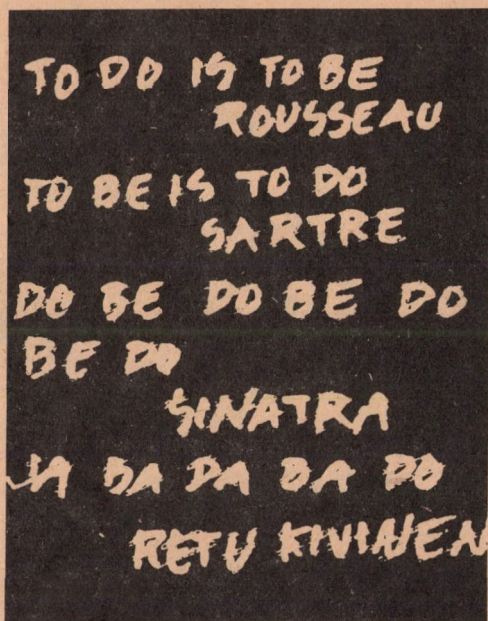 TO DO IS TO BE
ROUSSEAU
TO BE IS TO DO
SARTRE
DO BE DO BE DO
BE DO
SINATRA
JA BA DA BA DO
RETU KIVINEN